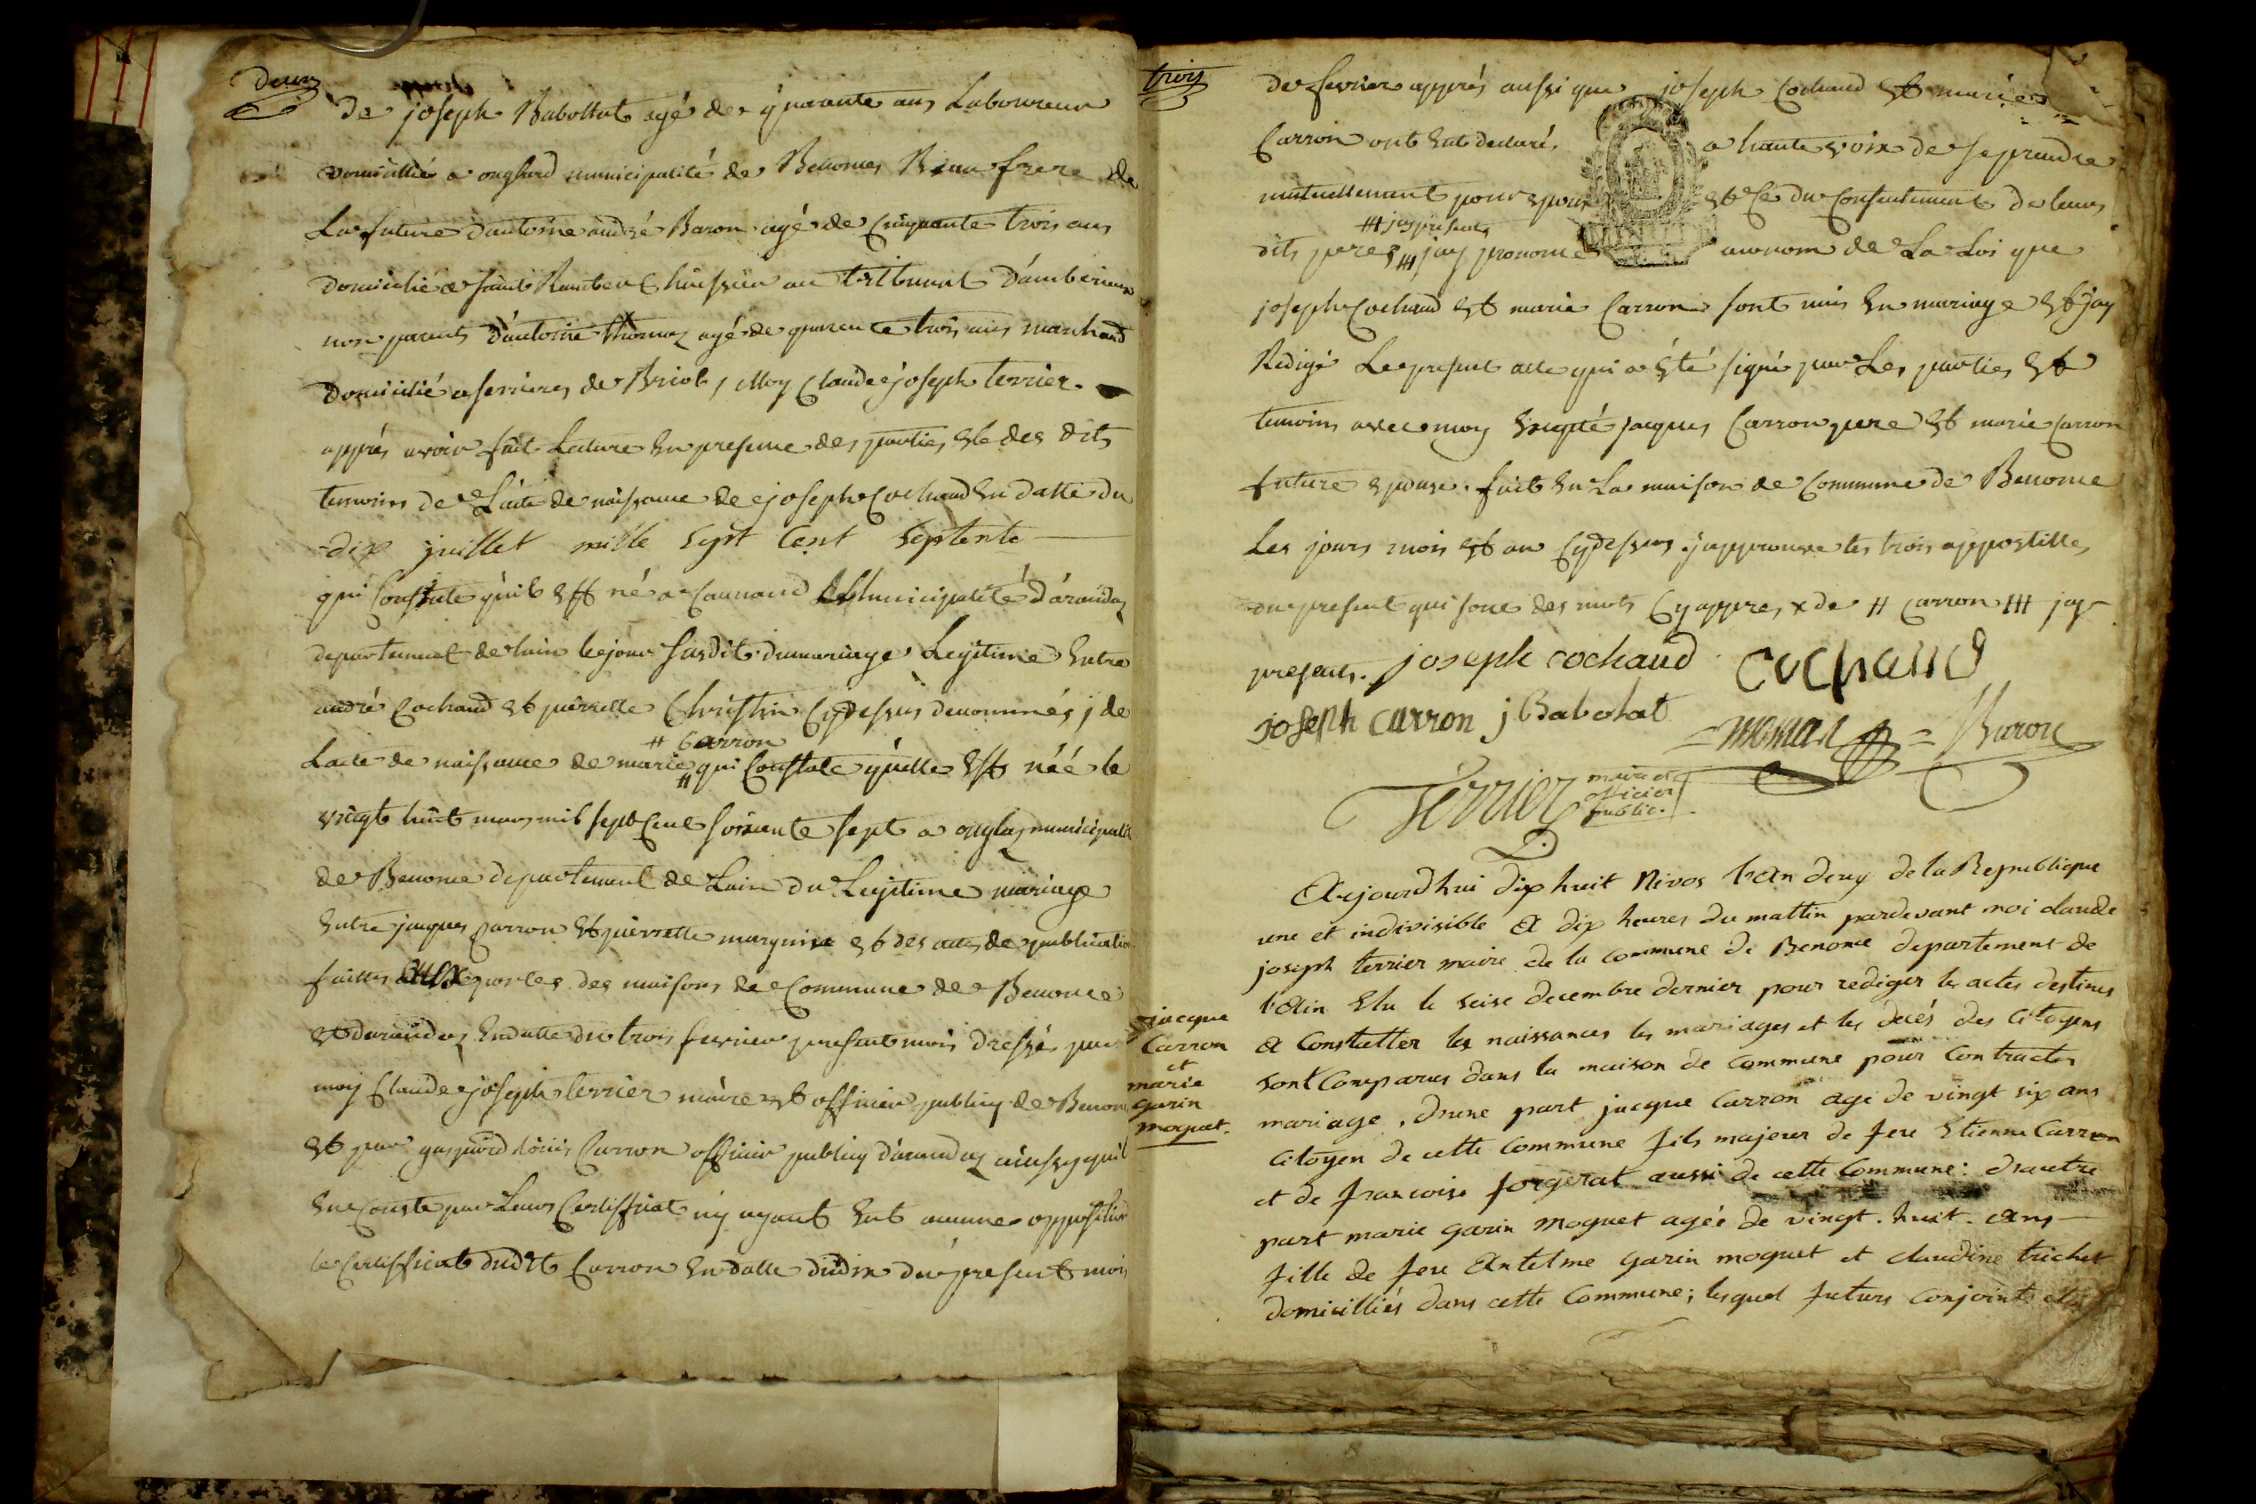 deux
de joseph Babollat agé de quarante ans Laboureur
domicillié a onglard municipalité de Benonces Beau frere de
La future dantoine andré Baron agé de Cinquante trois ans
domicilié a saint Rambert huissier au tribunal D'amberieux
non parent D'antoine thomaz agé de quarente trois ans marchand
Domicilié a serrieres de Briot, Moy Claude joseph terrier.
apprés avoir fait Lecture En presence des parties Et des dits
temoins de L'acte de naissance de joseph Cochaud En datte du
dix juillet mille sept Cent septente
qui Constate quil Est né a municipalité d'arandaz
departement de lain le jour susdit du mariage Legitime Entre
andré Cochaud Et pierrette Christin Cydessus denommés, de
# Carron
Lacte de naissance de marie # qui Constate quelle Est néé le
vingt huit mars mil sept Cent soixante sept a onglaz municipalité
de Benonce departement de Lain du Legitime mariage
Entre jaques Carron Et pierrette marguire Et des actes de publication
faittes aux portes des maisons de Commune de Benonce
Et darandas En datte du trois fevrier present mois dressés par
moy Claude joseph terrier maire Et officier publicq de Benonce
Et par gaspard loüis Carron officier publicq d'arandaz ainssy quil
En Conste par Leurs Certifficat ny ayant Eut aucune opposition
le Certifficat dudit Carron En datte du dix du present mois
trois
de fevrier apprés aussi que joseph Cochaud Et marie
Carron ont Eut declaré a haute voix de se prendre
mutuellement pour Epoux Et Ce du Consentement de leurs
# jcy presents
dits peres # jay prononcé au nom de La Loi que
joseph Cochaud Et marie Carron sont unis En mariage Et jay
Redigé Le present acte qui a Eté signé par Les parties Et
temoins avec moy Exepté jaques Carron pere Et marie Carron
future Epouse. fait En La maison de Commune de Benonce
Les jours mois Et an Cydessus. j'approuve les trois appostilles
du present qui sont des mots Cy appres x de # Carron # jcy
presents. joseph cochaud cochaud
joseph carron j Babolat
=thomaz= Baron
Terrier maire et
officier
public.
Aujourdhui dix huit Nivos l'an deux de la Republique
une et indivisible A dix heures du mattin pardevant moi claude
joseph terrier maire de la commune de Benonce departement de
l'Ain Elu le seise decembre dernier pour rediger les actes destines
A Constatter les naissances les mariages et les decés des Citoyens
sont Comparus dans la maison de commune pour Contracter
mariage, d'une part jacque Carron agé de vingt six ans
Citoyen de cette commune fils majeur de feu Etienne Carron
et de francoise forgerat aussi de cette Commune: d'autre
part marie garin moguet agée de vingt. huit. ans
fille de feu Antelme garin moguet et claudine trichet
domicilliés dans cette Commune; lesquel futurs Conjoints
jacque
Carron
et
marie
garin
moguet.